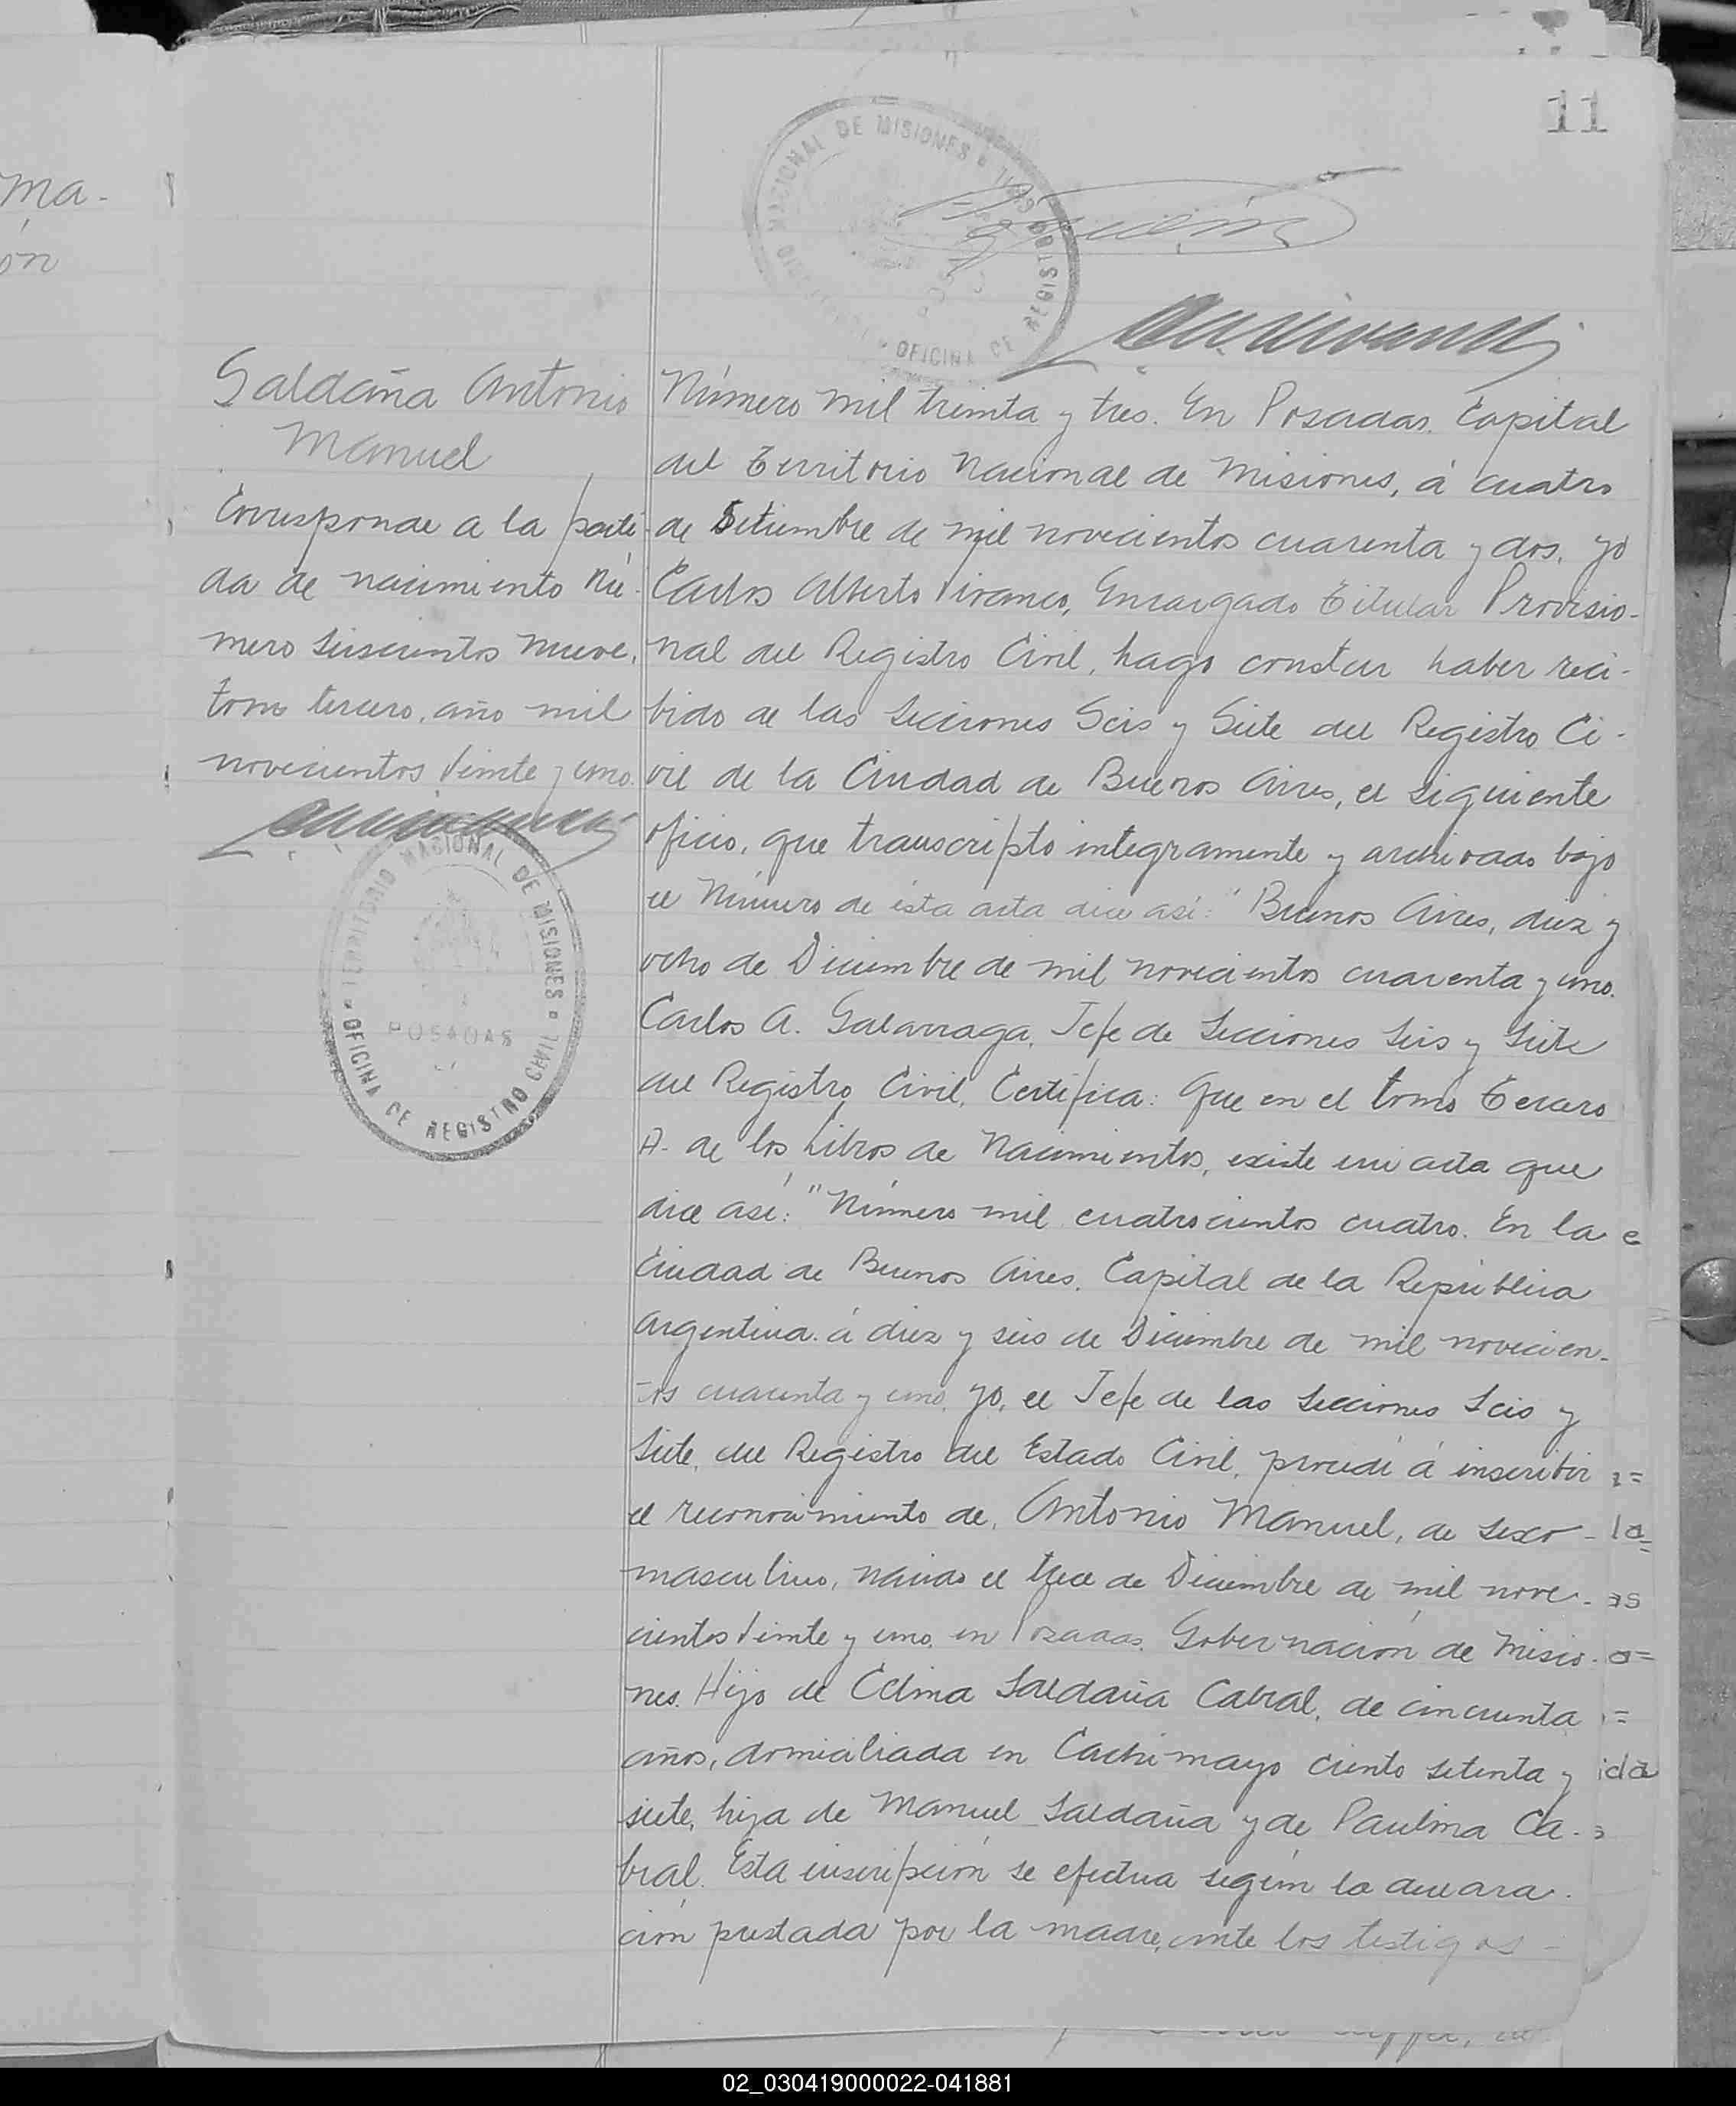 11
ma-
ón
TERRITORIO NACIONAL DE MISIONES
OFICINA DE REGISTRO CIVIL
POSADAS
Saldaña Antonio
Manuel
Corresponde a la parti-
da de nacimiento Nú-
mero seiscientos nueve,
tomo tercero, año mil
novecientos veinte y uno.
TERRITORIO NACIONAL DE MISIONES
POSADAS
OFICINA DE REGISTRO CIVIL
Número mil treinta y tres. En Posadas, Capital
del Territorio Nacional de Misiones, á cuatro
de Setiembre de mil novecientos cuarenta y dos, yo
Carlos Alberto Vivanco, Encargado Titular Provisio-
nal del Registro Civil, hago constar haber reci-
bido de las Secciones Seis y Siete del Registro Ci-
vil de la Ciudad de Buenos Aires, el siguiente
oficio, que transcripto integramente y archivado bajo
el Número de ésta acta dice así: "Buenos Aires, diez y
ocho de Diciembre de mil novecientos cuarenta y uno.
Carlos A. Galarraga, Jefe de Secciones Seis y Siete
del Registro Civil, Certifica: Que en el tomo Tercero
A- de los Libros de Nacimientos, existe un acta que
dice así: "Número mil cuatrocientos cuatro. En la
Ciudad de Buenos Aires, Capital de la República
Argentina á diez y seis de Diciembre de mil novecien-
tos cuarenta y uno, yo, el Jefe de las Secciones Seis y
Siete, del Registro del Estado Civil, procedí á inscribir
el reconocimiento de, Antonio Manuel, de sexo-
masculino, nacido el trece de Diciembre de mil nove-
cientos veinte y uno, en Posadas, Gobernación de Misio-
nes. Hijo de Celma Saldaña Cabral, de cincuenta
años, domiciliada en Cachimayo ciento setenta y
siete, hija de Manuel Saldaña y de Paulina Ca-
bral. Esta inscripción se efectua según la declara-
ción prestada por la madre, ante los testigos-
02_030419000022-041881